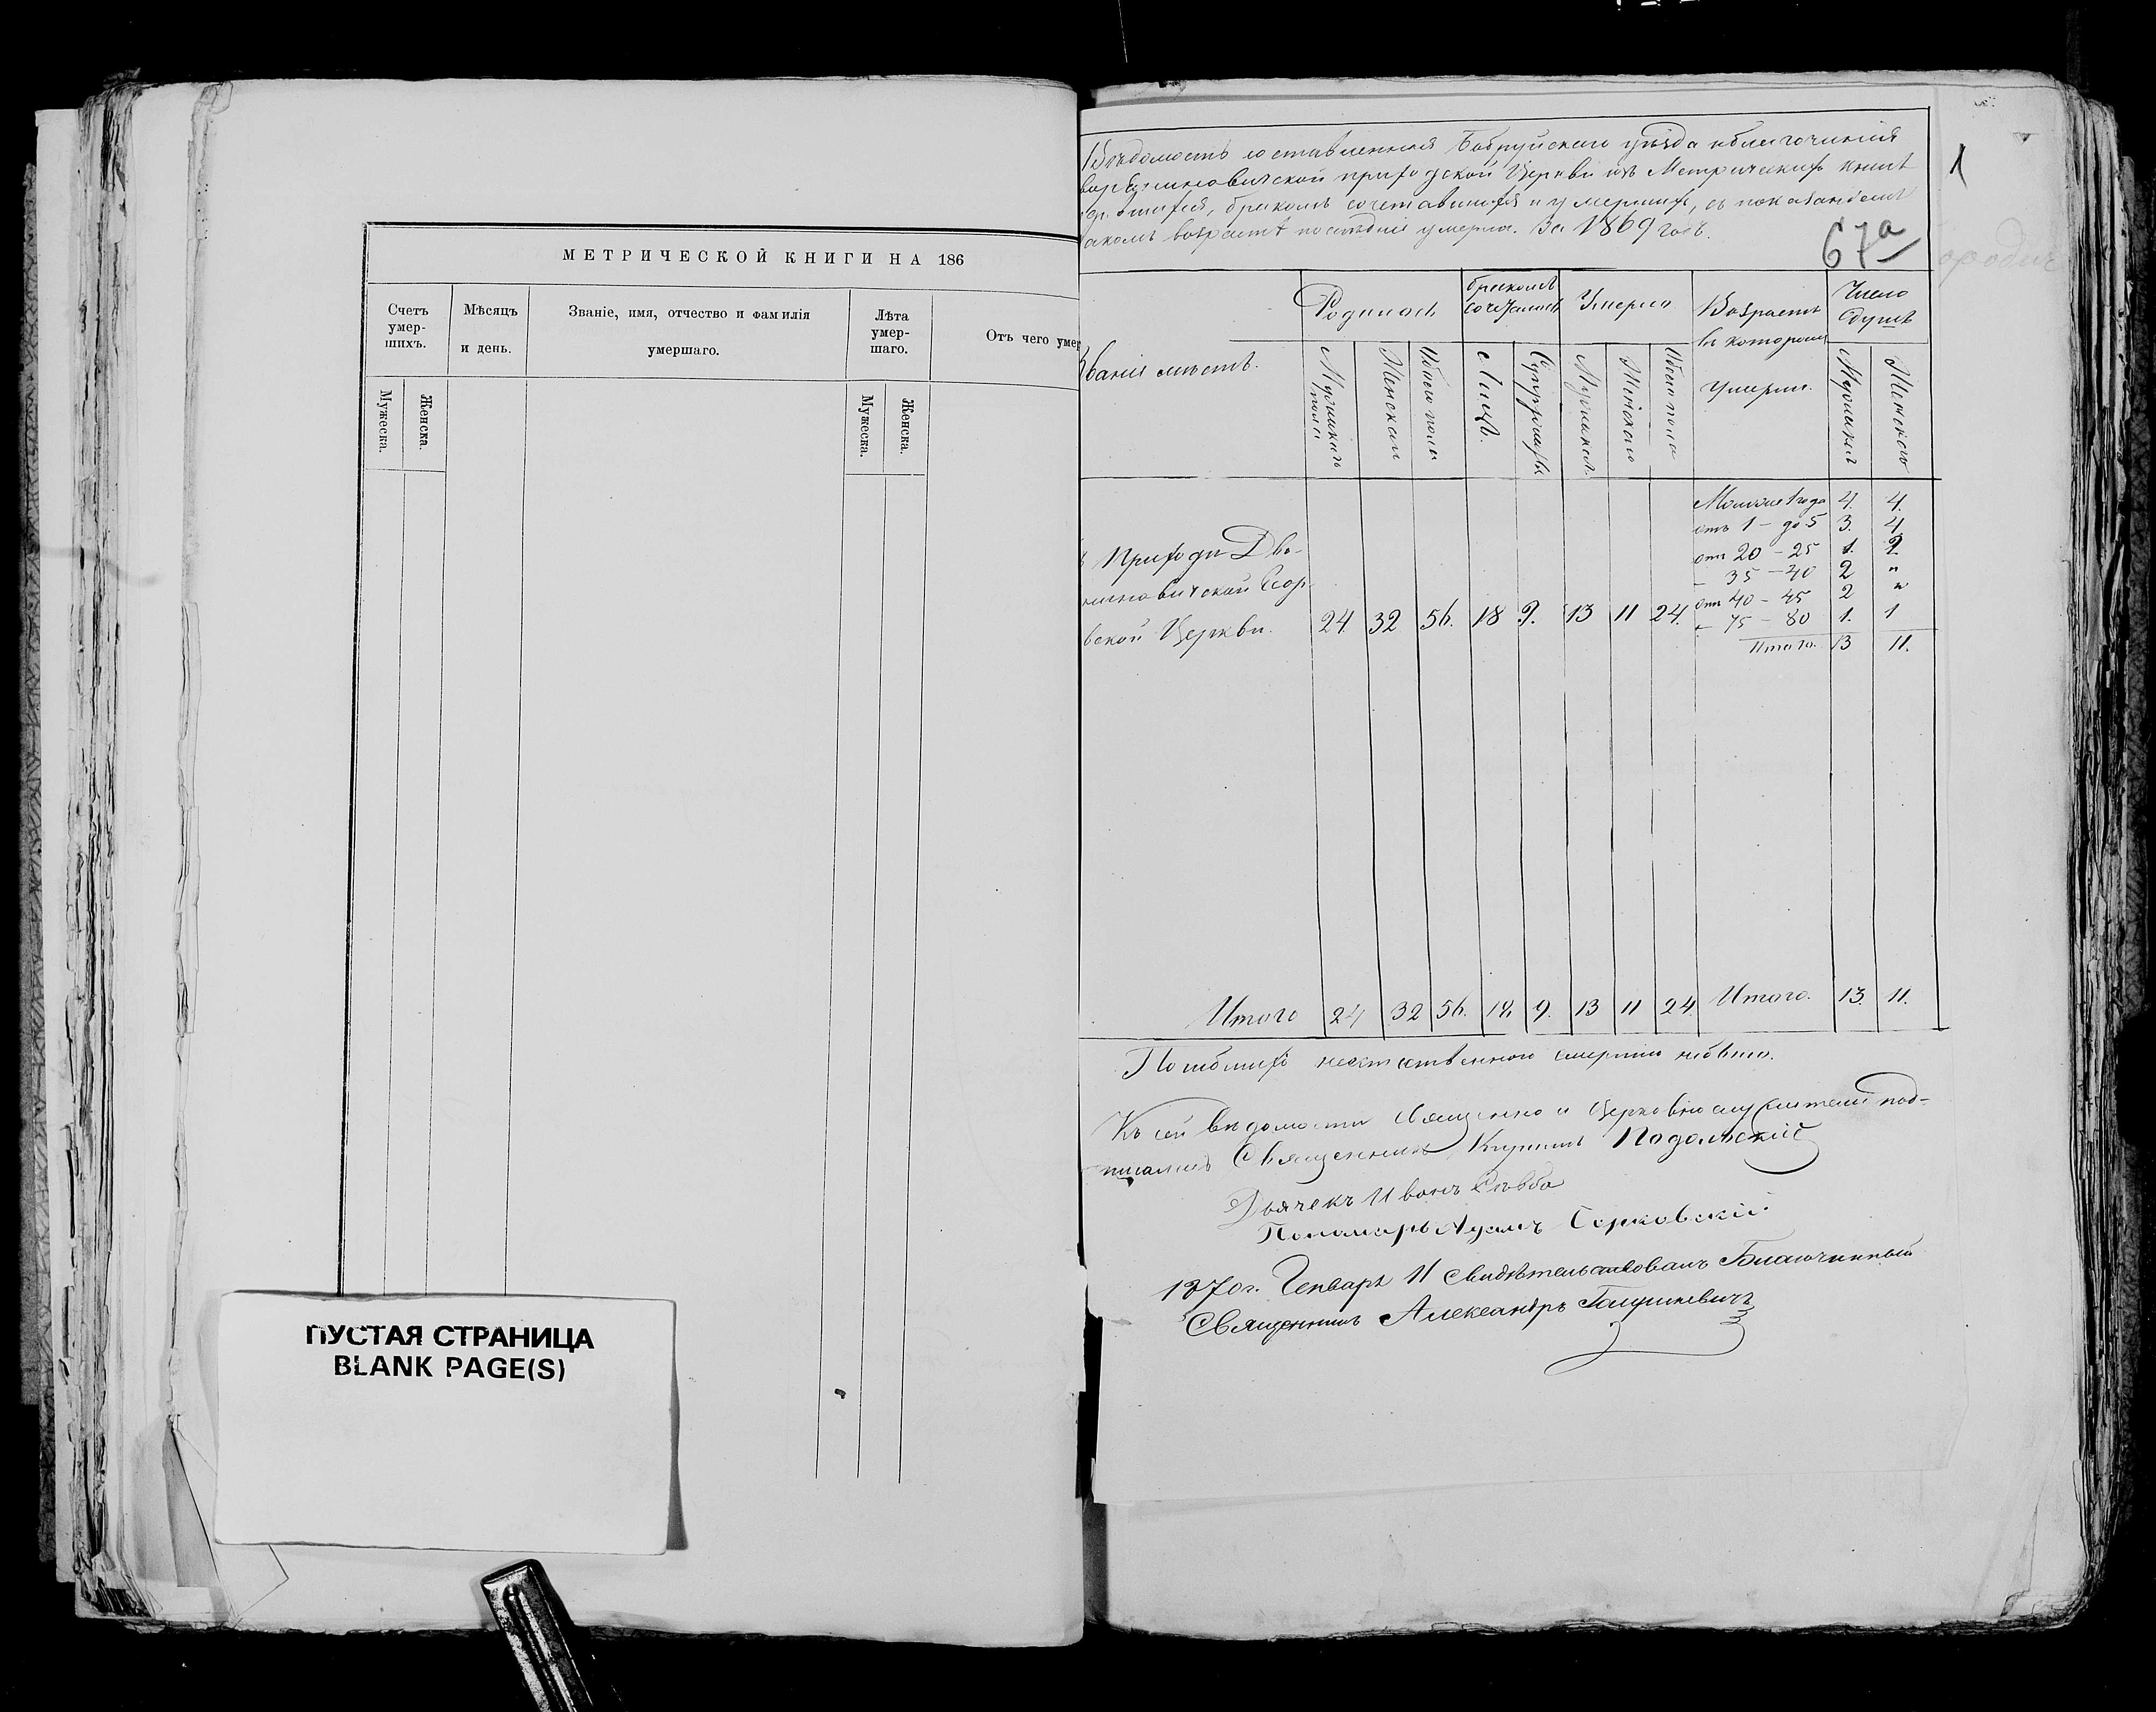 МЕТРИЧЕСКОЙ КНИГИ НА 186
Счетъ умер- шихъ.
Мѣсяцъ и день.
Званіе, имя, отчество и фамилія умершаго.
Лѣта умер- шаго.
Отъ чего умер
Мужеска.
Женска.
Мужеска.
Женска.
ПУСТАЯ СТРАНИЦА
BLANK PAGE(S)
1
Вѣдомость составленная Бобруйскаго уѣзда благочинія
приходской Церкви изъ Метрическихъ книгъ
бракомъ сочетавшихся и умершихъ, съ показаніемъ
акомъ возрастѣ послѣдніе умерли. За 1869 годъ.
67а
Званіе мѣстъ.
Родилось
бракомъ сочеталось
Умерло
Возрастъ въ которомъ умерли.
Число душъ
Мужскаго пола
Женскаго
Обоего пола
Лицъ.
Женскаго
Обоего пола
Женскаго
Приходъ Дво-
ской Церкви.
24 32 56. 18 9. 13 11 24.
Моложе 1 года 4. 4.
отъ 1 - до 5 3. 4
отъ 20 - 25 1. 2
- 35 - 40 2 "
отъ 40 - 45 2 "
- 75 - 80 1. 1
Итого. 13 11.
Итого 24 32 56. 18. 9. 13 11 24 Итого. 13. 11.
Погибшихъ неестественною смертію небыло.
Къ сей вѣдомости Священно и Церковнослужители под-
писались Священникъ Подольскій
Дьячекъ Иванъ
Пономарь Адамъ Серковскій
1870 г. Генваря 11 Свидѣтельствовалъ Благочинный
Священникъ Александръ